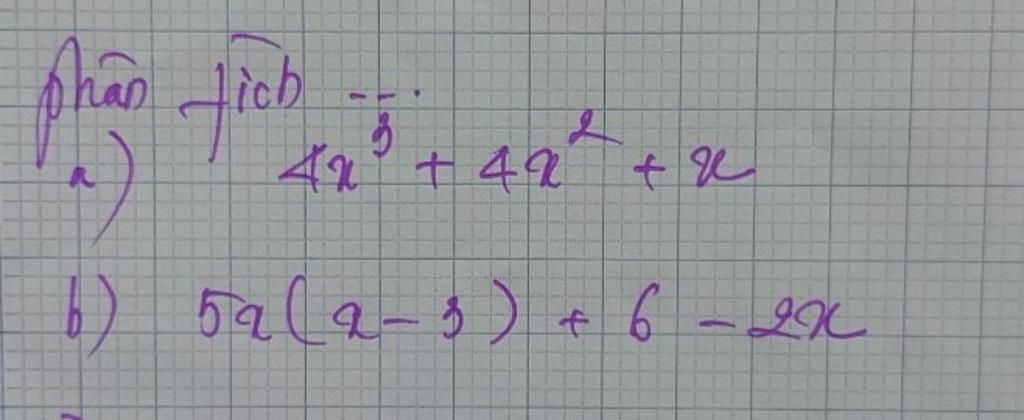 phân tích ---.
a) 4x³ + 4x² + x
b) 5x(x - 3) + 6 - 2x